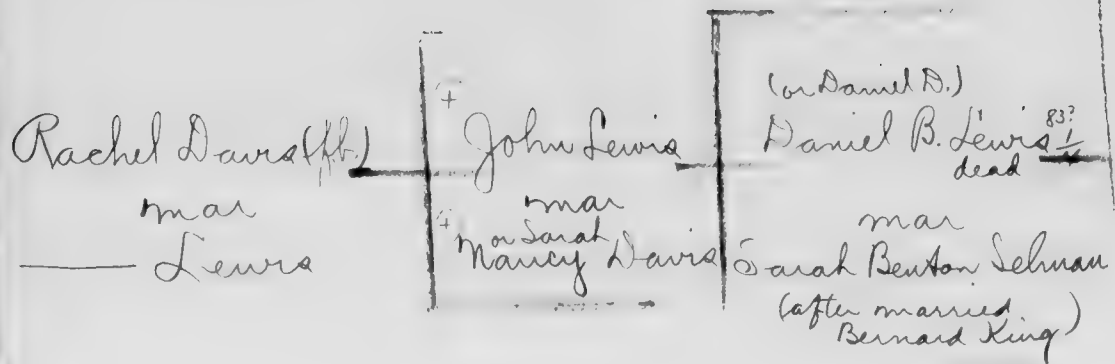 Rachel Davis (fb.)
mar
Lewis
+
John Lewis
mar
+
or Sarah
Nancy Davis
(or Daniel D.)
Daniel B. Lewis
83?
dead
mar
Sarah Benton Selman
(after married
Bernard King)